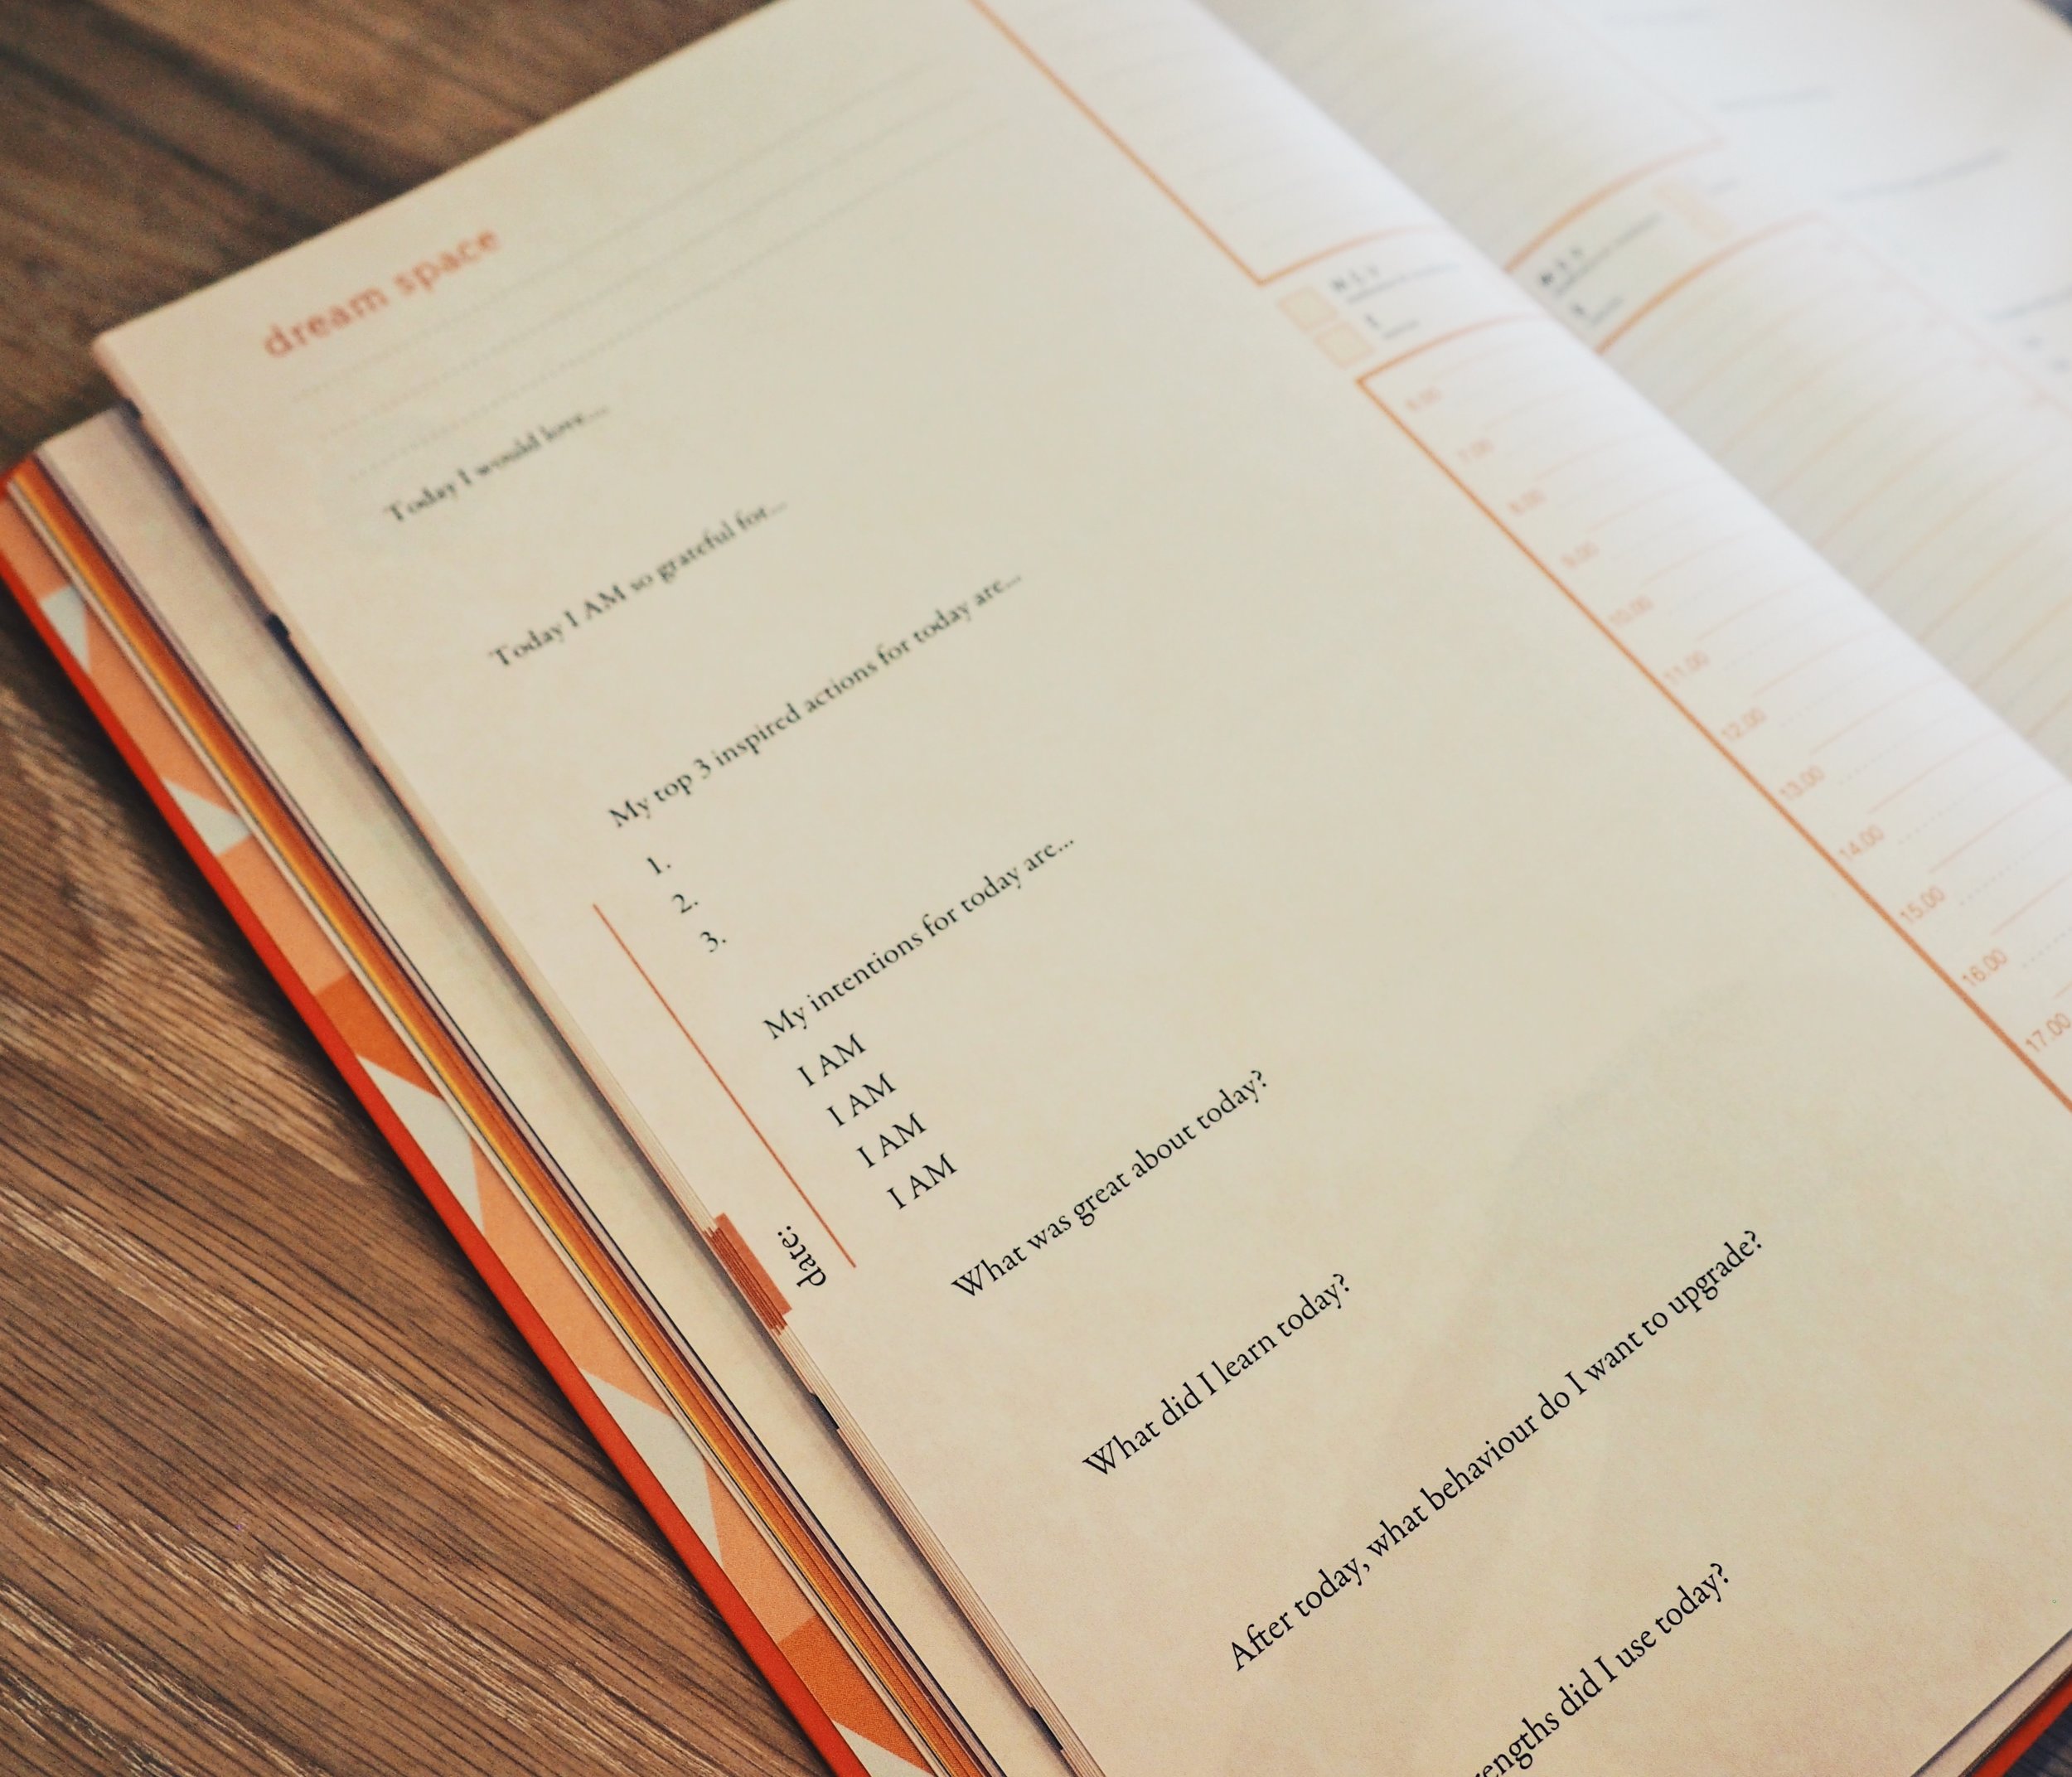 dream space
Today I would love...
Today I AM so grateful for...
My top 3 inspired actions for today are...
1.
2.
3.
My intentions for today are...
I AM
I AM
I AM
I AM
date:
What was great about today?
What did I learn today?
After today, what behaviour do I want to upgrade?
rengths did I use today?
6.00
7.00
8.00
9.00
10.00
11.00
12.00
13.00
14.00
15.00
16.00
17.00